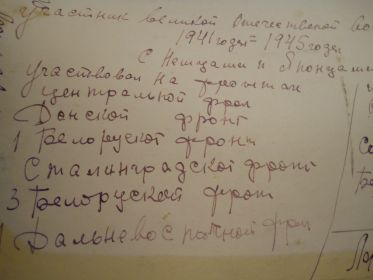 Участник великой Отечественой во
1941 года = 1945 годы
с Немцами и Японцами
Участвовал на фронтах
центральной фрон
Донской фронт
1 Белоруской фронт
Сталинградской фронт
3 Белоруской фрон
Дальневосточной фрон